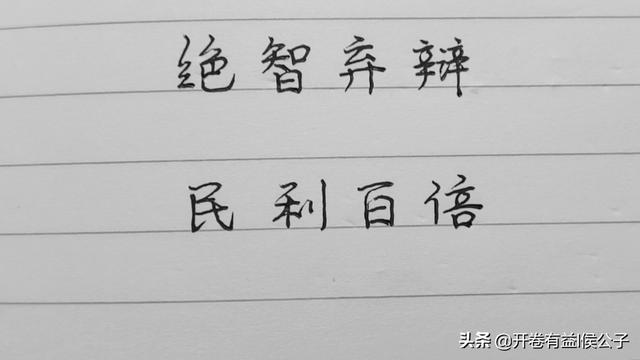 绝智弃辩
民利百倍
头条 @开卷有益I侯公子